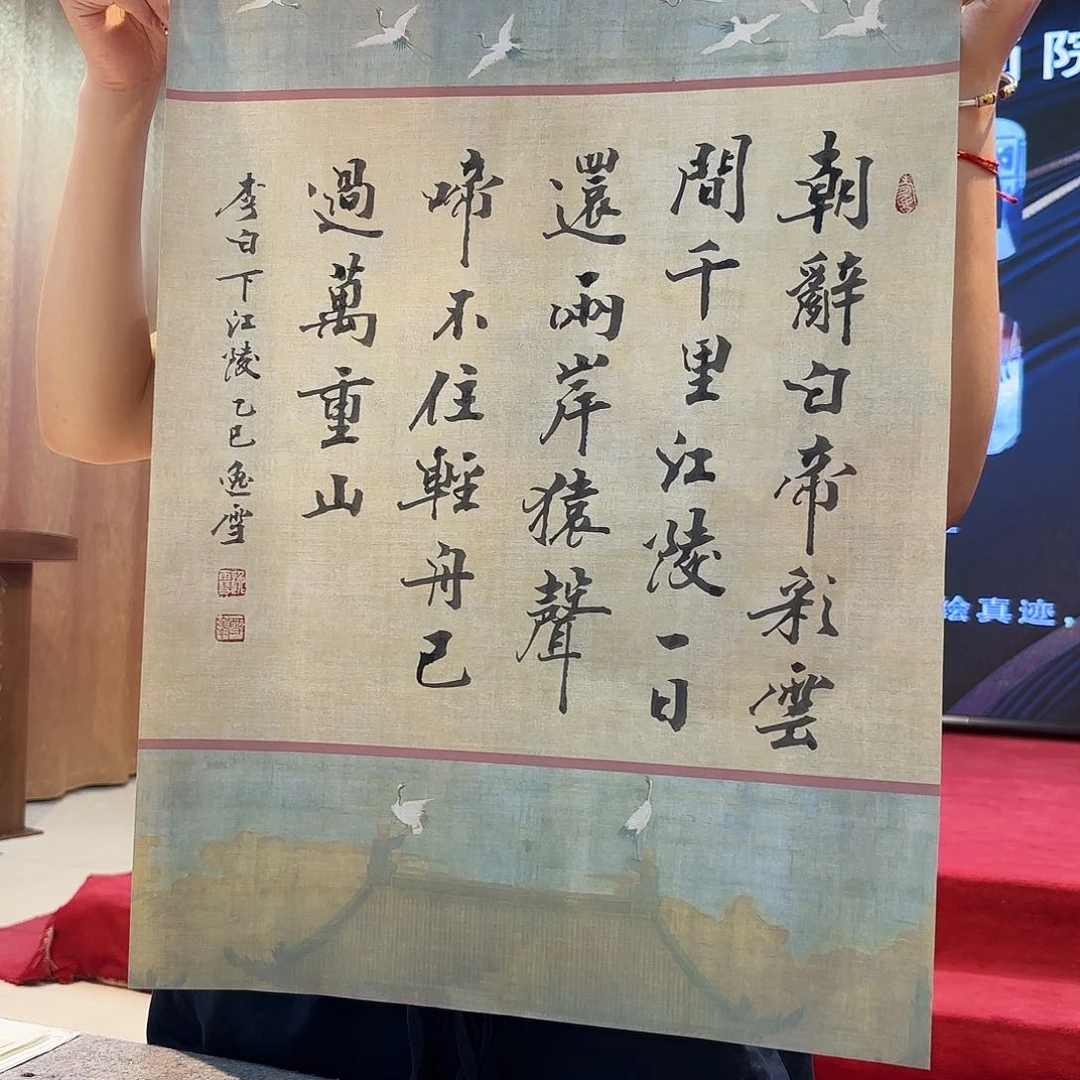 朝辭白帝彩雲
間千里江陵一日
還兩岸猿聲
啼不住輕舟已
過萬重山
李白下江陵乙巳逸雪
院
绘真迹，